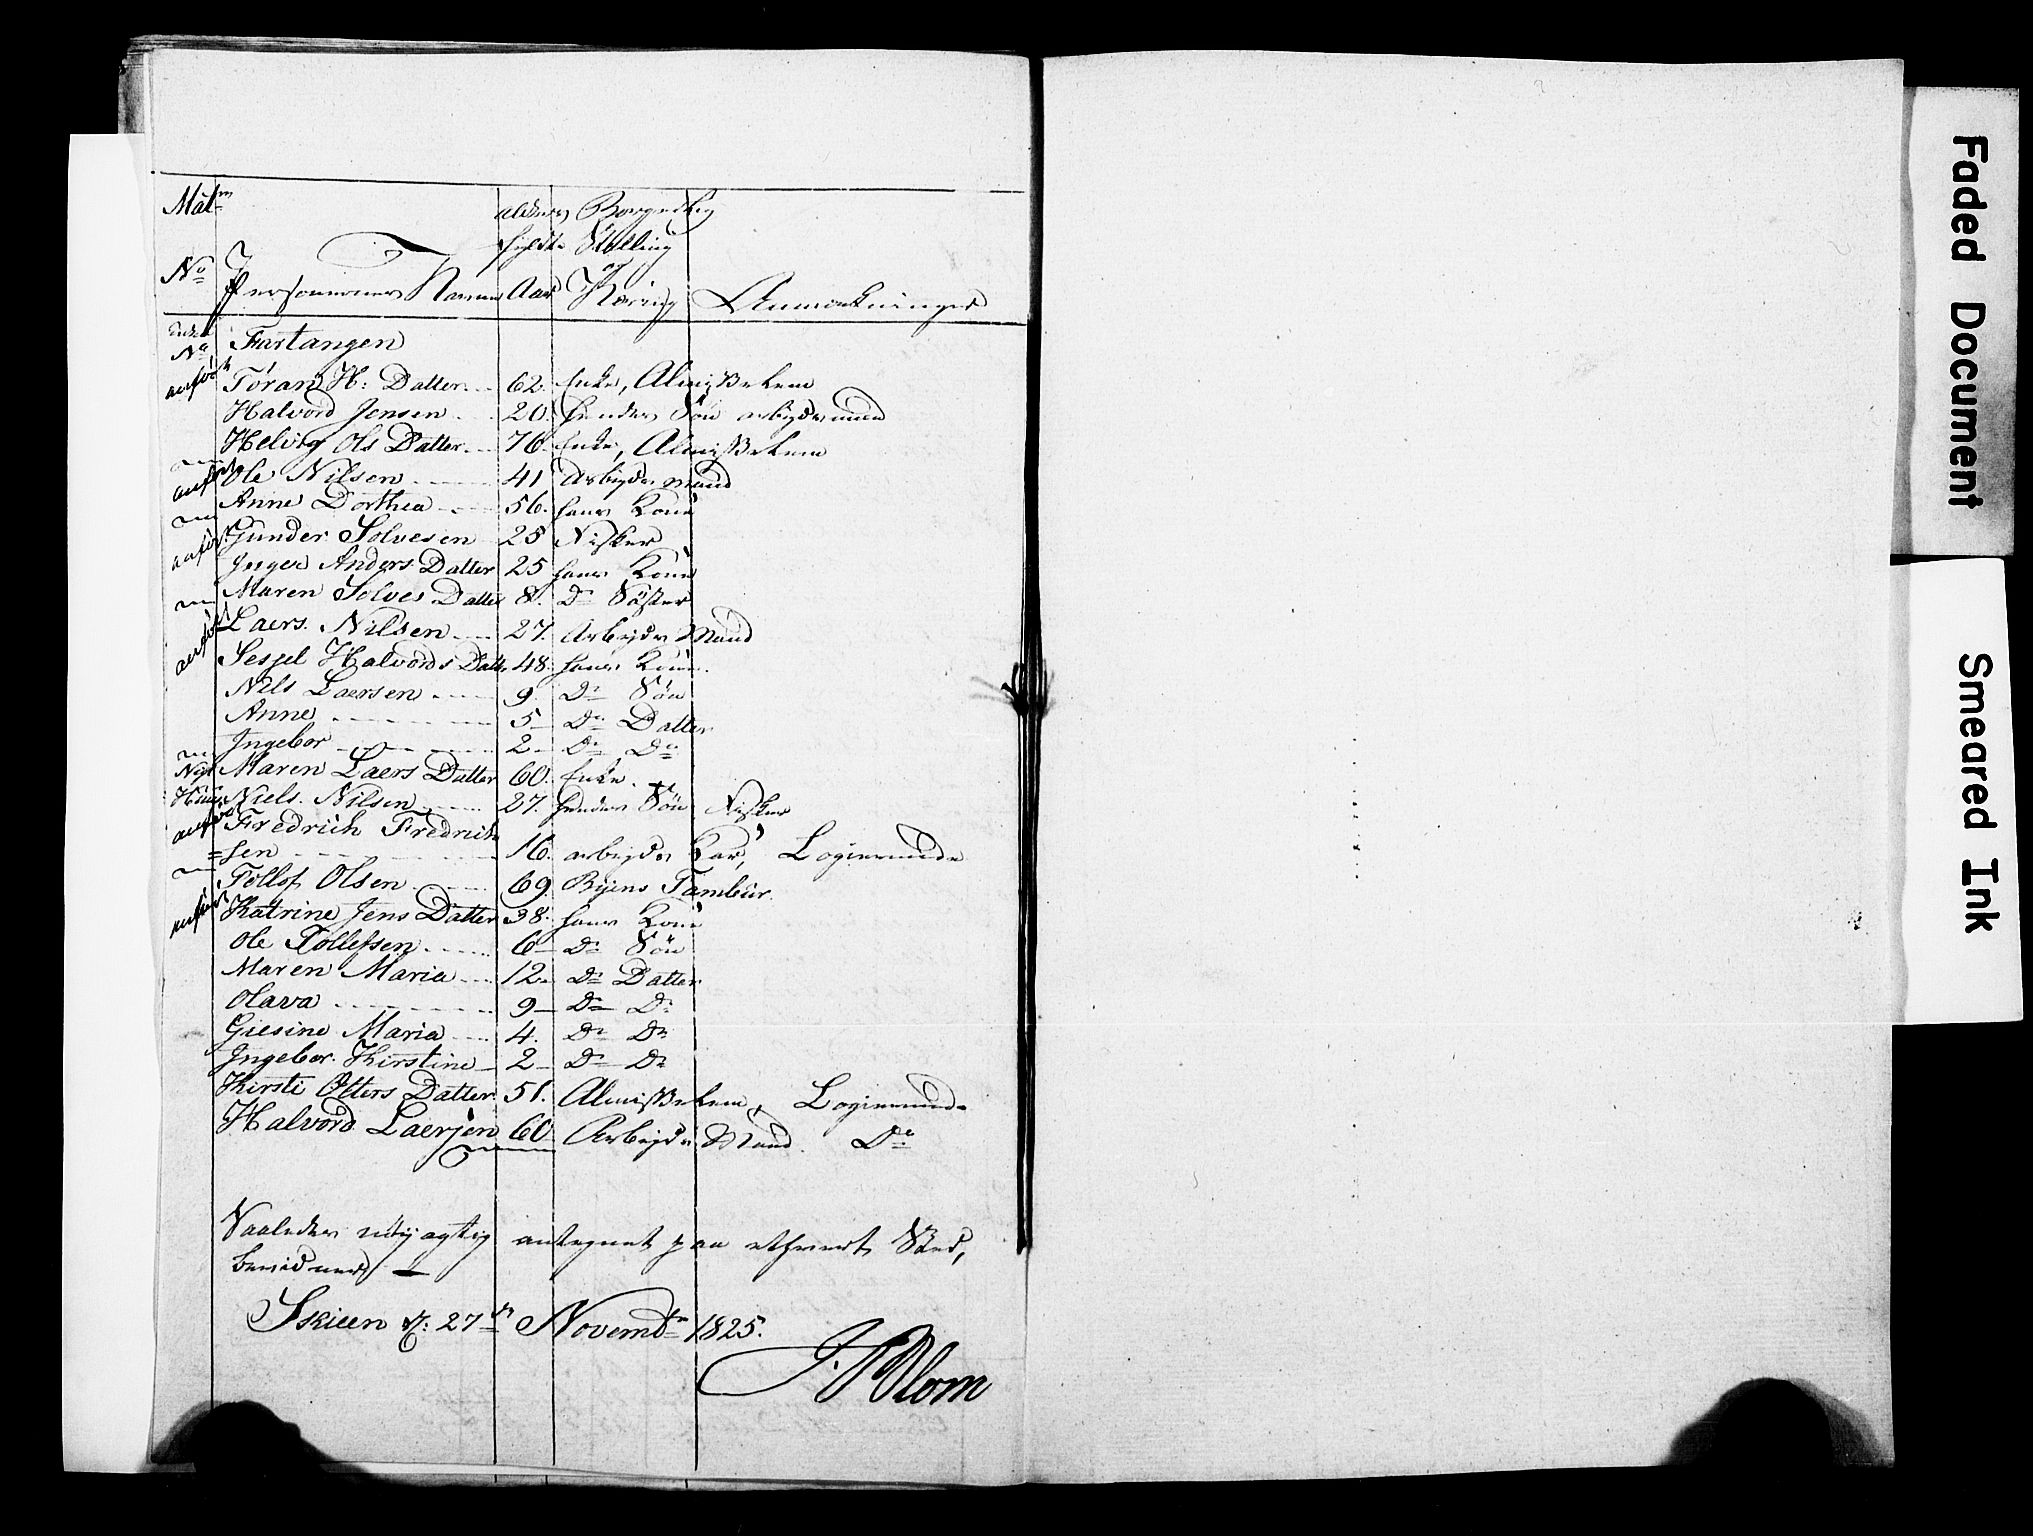 Mat:
No
Personernes Navne
Alders fyldte Aar
Borgerlig Stilling og Næring
Anmærkninger
Uden No Fartangen
anført Toran H: Datter 62. Enke, Almisselem
Halvord Jensen 20. hendes Søn arbeydsmand
Helvig Ols Datter 76 Enke, Almisselem
anført Ole Nilsen 41 Arbeyds mand
Anne Dorthea 56. hans Kone
anført Gunder Solvesen 25 Fisker
Inger Anders Datter 25 hans Kone
Maren Solves Datter 8. Do Søster
anført Laers Nilsen 27. Arbeyds Mand
Sesjel Halvords Datt. 48. hans Kone
Nils Laersen 9. Do Søn
Anne 5 Do Datter
Ingebor 2 Do Do
Maren Laers Datter 60. Enke.
Niels Nilsen 27. hendes Søn Fisker
anført Fredrich Fredrich
=sen 16. arbeyds Kar, Logierende
Tollof Olsen 69 Byens Tambur.
anført Katrine Jens Datter 38. hans Kone
Ole Tollefsen 6 Do Søn
Maren Maria 12. Do Datter
Olava 9 Do Do
Giesine Maria 4. Do Do
Ingebor Kirstine 2 Do Do
Kirsti Otters Datter 51. Almisselem, Logierende
Halvord Laersen 60 Arbeyds Mand. Do
Saaledes nöyagtig antegnet paa ethvert Sted,
bevidner
Skieen d: 27de Novembr 1825.
J. Blom
Faded Document
Smeared Ink